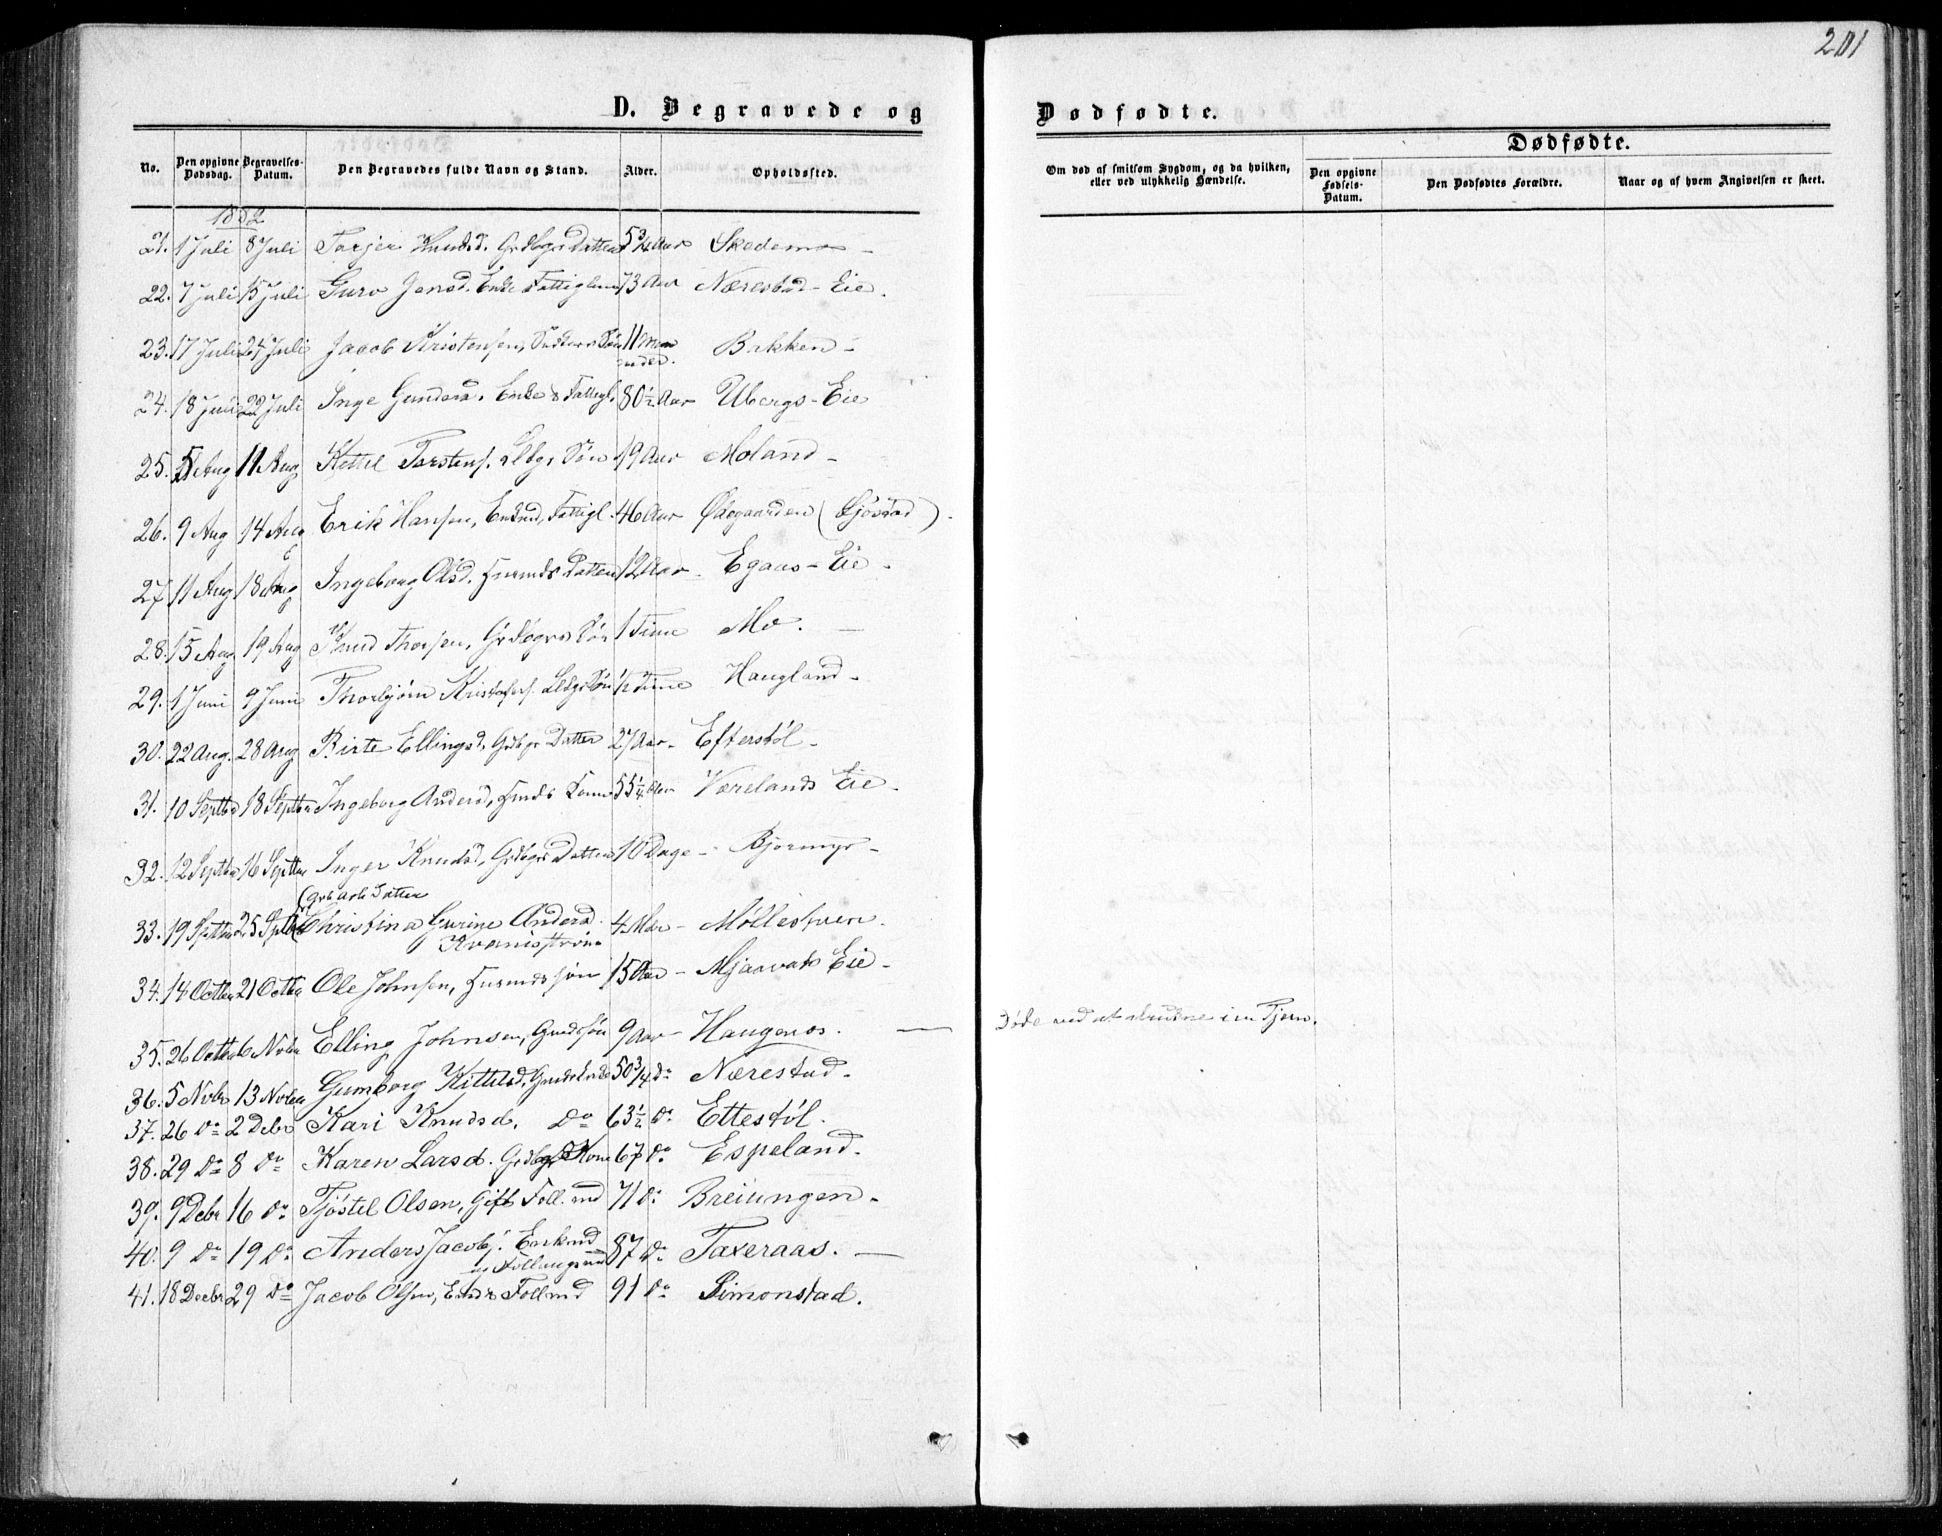 201
D. Begravede og Dødfødte.
No. Den opgivne Dødsdag. Begravelses-Datum. Den Begravedes fulde Navn og Stand. Alder. Opholdssted.
Om død af smitsom Sygdom, og da hvilken, eller ved ulykkelig Hændelse.
Dødfødte.
Den opgivne Fødsels-Datum. Den Dødfødtes Forældre. Naar og af hvem Angivelsen er skeet.
1882
21. 1 Juli 8 Juli Torjer Knudsd. Grdbgrs Datter 5 3/4 Aar Skedemo -
22. 7 Juli 15 Juli Guro Jensd. Enke Fattiglem 73 Aar Nærestad - Eie.
23. 17 Juli 24 Juli Jacob Kristensen, Søn 11 Maaneder. Bakken -
24. 18 Juli 22 Juli Inge Gundersd. Enke & Fattigl. 80 1/2 Aar Ubergs - Eie
25. 5 Aug 11 Aug Kittil Torstens. Søn 19 Aar Moland -
26. 9 Aug 14 Aug Erik Hansen, Enkmd, Fattigl. 46 Aar Ødegaarden (Gjøvstad).
27 11 Aug 18 Aug Ingeborg Olsd. Husmds Datter 12 Aar. Egaas - Eie -
28. 15 Aug 19 Aug Knud Thorsen, Grdbgrs Søn 1 Time Mo. -
29. 1 Juni 9 Juni Thorbjørn Kristofers. Søn 1/2 Time Haugland -
30. 22 Aug. 28 Aug Birte Ellingsd, Grdbgr Datter 27 Aar - Efterstøl -
31. 10 Septbr 18 Septbr Ingeborg Andersd, Husmds Kone 55 1/4 Aar Værelands Eie -
32. 12 Septbr 16 Septbr Inger Knudsd, Grdbgrs Datter 10 Dage - Bjormyr -
(Grb Arb Datter
33. 19 Septbr 25 Septbr Christina Gurine Andersd. 4 Mdr - Møllestuen.
Kvarnistrøm
34. 14 Octbr 21 Octbr Ole Johnsen, Husmds søn 15 Aar - Mjaavats Eie -
35. 26 Octbr 6 Novbr Elling Johnsen, Gmds Søn 9 Aar - Haugenes. — Døde ved at drukne i en Tjern.
36. 5 Novbr 13 Novbr Gumborg Kittilsd. Gmds Enke 50 3/4 do Nærestad -
37. 26 do 2 Debr Kari Knudsd. do 63 1/2 do Ettestøl.
38. 29 do 8 do Karen Larsd. Grdbgs Kone 67 do Espeland.
39. 9 Debr 16 do Tjøstel Olsen, Gift Foll.md 71 do Breiungen -
40. 9 do 19 do Anders Jacobs. Enkmd 87 do Taxeraas. —
og Føllingsmd
41. 18 Decbr 29 do Jacob Olsen, Enk & Follmd 91 do Simonstad.